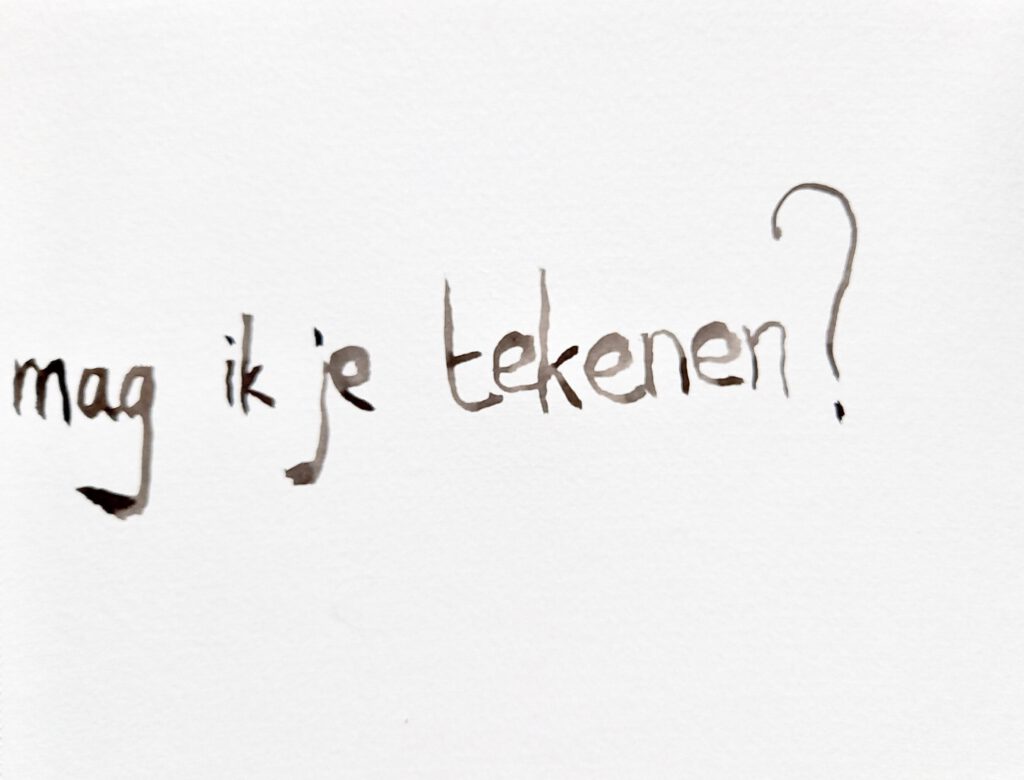 mag ik je tekenen?